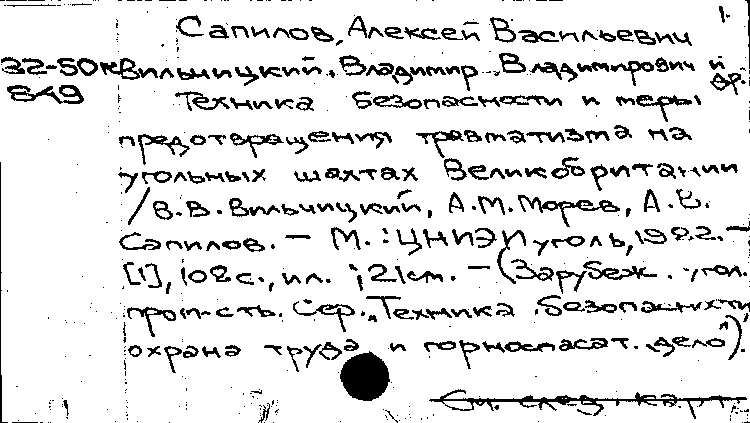 1.
Сапилов, Алексей Васильевич
32-50к Вильчицкий, Владимир Владимирович и др.
849 Техника безопасности и меры
предотвращения травматизма на
угольных шахтах Великобритании
/ В.В. Вильчицкий, А.М. Морев, А.В.
Сапилов. – М. : ЦНИЭИуголь, 1982. –
[1], 102 с., ил. ; 21 см. – (Зарубеж. угол.
пром-сть. Сер. „Техника безопасности,
охрана труда и горноспасат. дело").
См. след. карт.